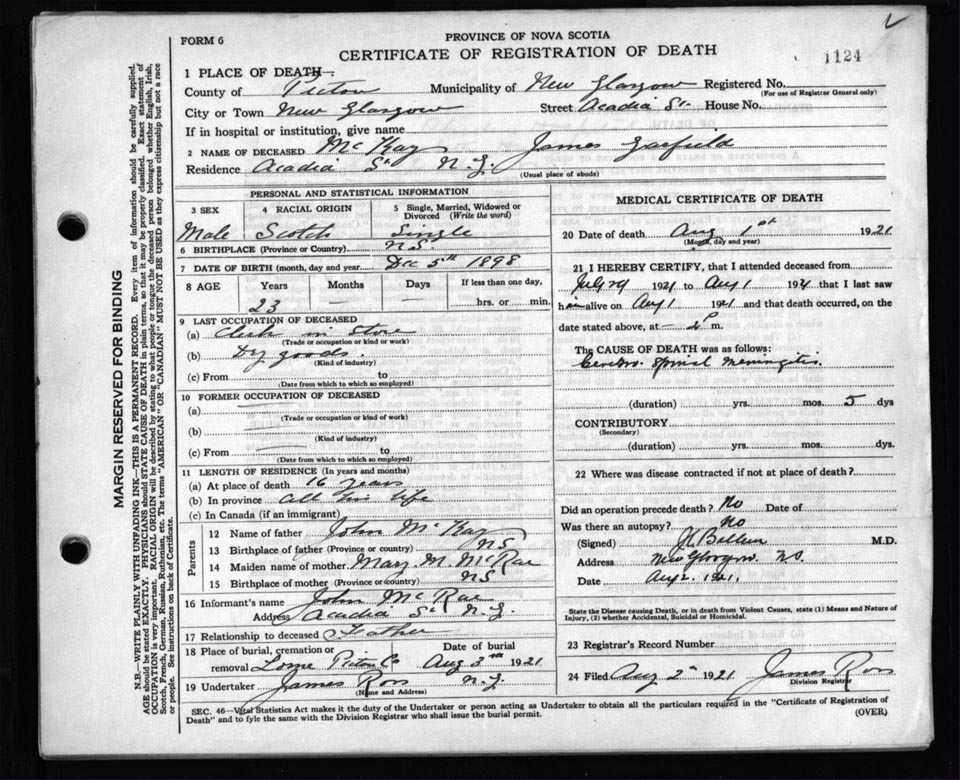 FORM 6
PROVINCE OF NOVA SCOTIA
CERTIFICATE OF REGISTRATION OF DEATH
1124
1 PLACE OF DEATH—
County of Pictou Municipality of New Glasgow Registered No.
(For use of Registrar General only)
City or Town New Glasgow Street Acadia St. House No.
If in hospital or institution, give name
2 NAME OF DECEASED McKay James Garfield
Residence Acadia St N.G.
(Usual place of abode)
PERSONAL AND STATISTICAL INFORMATION
3 SEX 4 RACIAL ORIGIN 5 Single, Married, Widowed or Divorced (Write the word)
Male Scotch Single
6 BIRTHPLACE (Province or Country) NS
7 DATE OF BIRTH (month, day and year) Dec 5th 1898
8 AGE Years Months Days If less than one day,
23 — — hrs. or min.
9 LAST OCCUPATION OF DECEASED
(a) Clerk in Store
(Trade or occupation or kind or work)
(b) Dry goods.
(Kind of industry)
(c) From to
(Date from which to which so employed)
10 FORMER OCCUPATION OF DECEASED
(a)
(Trade or occupation or kind of work)
(b)
(Kind of industry)
(c) From to
(Date from which to which so employed)
11 LENGTH OF RESIDENCE (In years and months)
(a) At place of death 16 years
(b) In province all his life
(c) In Canada (if an immigrant)
Parents
12 Name of father John McKay
13 Birthplace of father (Province or country) NS
14 Maiden name of mother Mary M. McRae
15 Birthplace of mother (Province or country) NS
16 Informant's name John McRae
Address Acadia St N.G.
17 Relationship to deceased Father
18 Place of burial, cremation or Date of burial
removal Lorne Pictou Co Aug 3rd 1921
19 Undertaker James Ross N.G.
(Name and Address)
MEDICAL CERTIFICATE OF DEATH
20 Date of death Aug 1st 1921
(Month, day and year)
21 I HEREBY CERTIFY, that I attended deceased from
July 29 1921 to Aug 1 1921 that I last saw
him alive on Aug 1 1921 and that death occurred, on the
date stated above, at— 2 P m.
The CAUSE OF DEATH was as follows:
Cerebro Spinal Meningitis.
(duration) yrs. mos. 5 dys
CONTRIBUTORY
(Secondary)
(duration) yrs. mos. dys.
22 Where was disease contracted if not at place of death?
Did an operation precede death? No Date of
Was there an autopsy? No
(Signed) M.D.
Address New Glasgow N.S.
Date Aug 2. 1921.
State the Disease causing Death, or in death from Violent Causes, state (1) Means and Nature of
Injury, (2) whether Accidental, Suicidal or Homicidal.
23 Registrar's Record Number
24 Filed Aug 2 1921 James Ross
Division Registrar
SEC. 46—Vital Statistics Act makes it the duty of the Undertaker or person acting as Undertaker to obtain all the particulars required in the "Certificate of Registration of
Death" and to fyle the same with the Division Registrar who shall issue the burial permit.
(OVER)
MARGIN RESERVED FOR BINDING
N.B.—WRITE PLAINLY WITH UNFADING INK—THIS IS A PERMANENT RECORD. Every item of information should be carefully supplied.
AGE should be stated EXACTLY. PHYSICIANS should STATE CAUSE OF DEATH in plain terms, so that it may be properly classified. Exact statement of
OCCUPATION is very important. RACIAL ORIGIN will be described by stating to what people or tongue the deceased person belonged whether English, Irish,
Scotch, French, German, Russian, Ruthenian, etc. The terms "AMERICAN" OR "CANADIAN" MUST NOT BE USED as they express citizenship but not a race
or people. See instructions on back of Certificate.